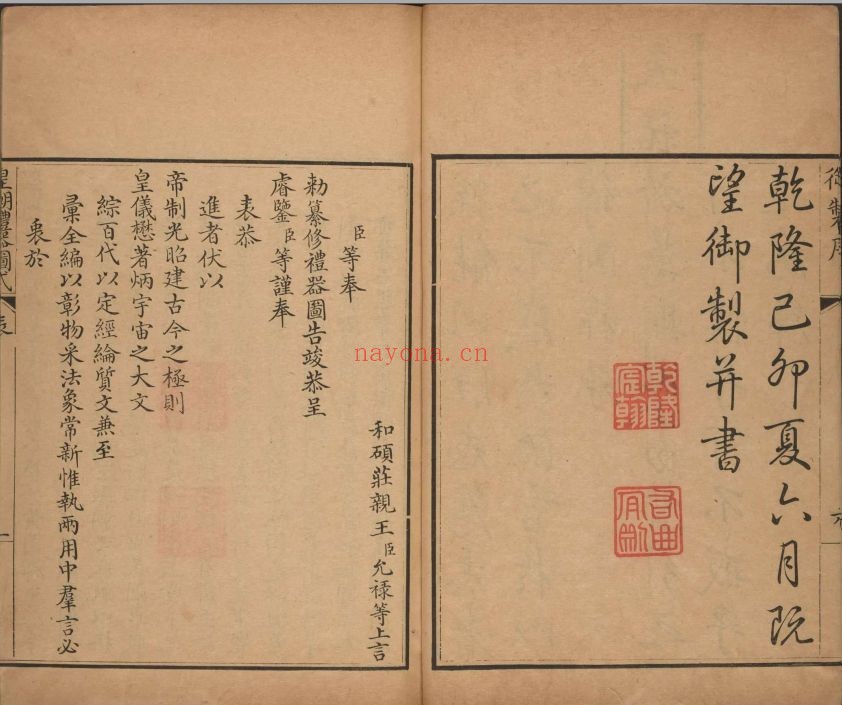 御製序
乾隆己卯夏六月既
望御製并書
乾隆宸翰
和碩莊親王臣允祿等上言
臣等奉
勅纂修禮器圖告竣恭呈
睿鑒臣等謹奉
表恭
進者伏以
帝制光昭建古今之極則
皇儀懋著炳宇宙之大文
綜百代以定經綸質文兼至
彙全編以彰物采法象常新惟執兩用中羣言必
衷於
皇朝禮器圖式
表
一
nayona.cn